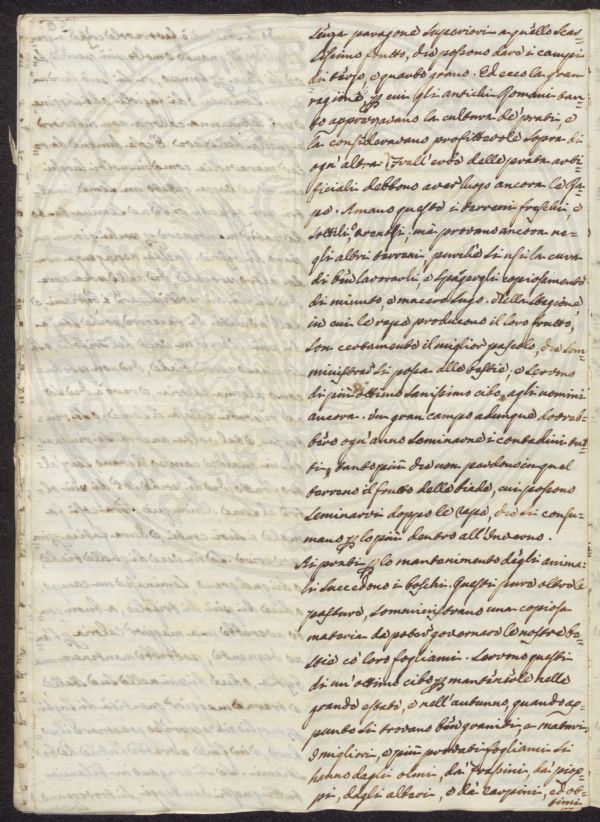 senza paragone superiori a quello scar-
sissimo frutto, che possono dare i campi
di terzo, e quarto grano. Ed ecco la gran
ragione p cui gli antichi Romani tan-
to approvavano la cultura de' prati, e
la consideravano profittevole sopra di
ogn' altra. Frall' erbe delle prata arti-
ficiali debbono aver luogo ancora le Ra-
pe. Amano queste i terreni freschi, e
sottili, o renosi; ma provano ancora ne-
gli altri terreni, purchè si usi la cura
di ben lavorarli, e spargergli copiosamente
di minuto, e macero sugo. Nella stagione
in cui le rape producono il loro frutto,
son certamente il miglior pascolo, che som-
ministrar si possa alle bestie; e servono
di più ottimo sanissimo cibo agli uomini
ancora. Un gran campo adunque dovreb-
bero ogn' anno seminarne i contadini tut-
ti, tanto più che non perdono in quel
terreno il frutto delle biade, cui possono
seminarvi doppo le rape, che si consu-
mano p lo più dentro all' Inverno.
Ai prati p lo mantenimento degli anima-
li succedono i boschi. Questi pure oltre le
pasture, somministrano una copiosa
materia da poter governare le nostre be-
stie co' loro fogliami. Servono questi
di un' ottimo cibo p mantenerle nelle
grande estate, e nell' autunno, quando ap-
punto si trovano ben graniti, e maturi.
I migliori, e più fogliami si
hanno dagli olmi, da' frassini, da' piop-
pi, dagli alberi, e da' carpini, ed ot-
timi